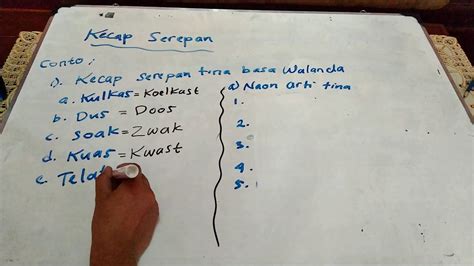 Kecap Serepan
Conto :
1). Kecap serepan tina basa Walanda
a. Kulkas = Koelkast
b. Dus = Doos
c. Soak = Zwak
d. Kuas = Kwast
e. Tela
a) Naon arti tina
1.
2.
3.
4.
5.